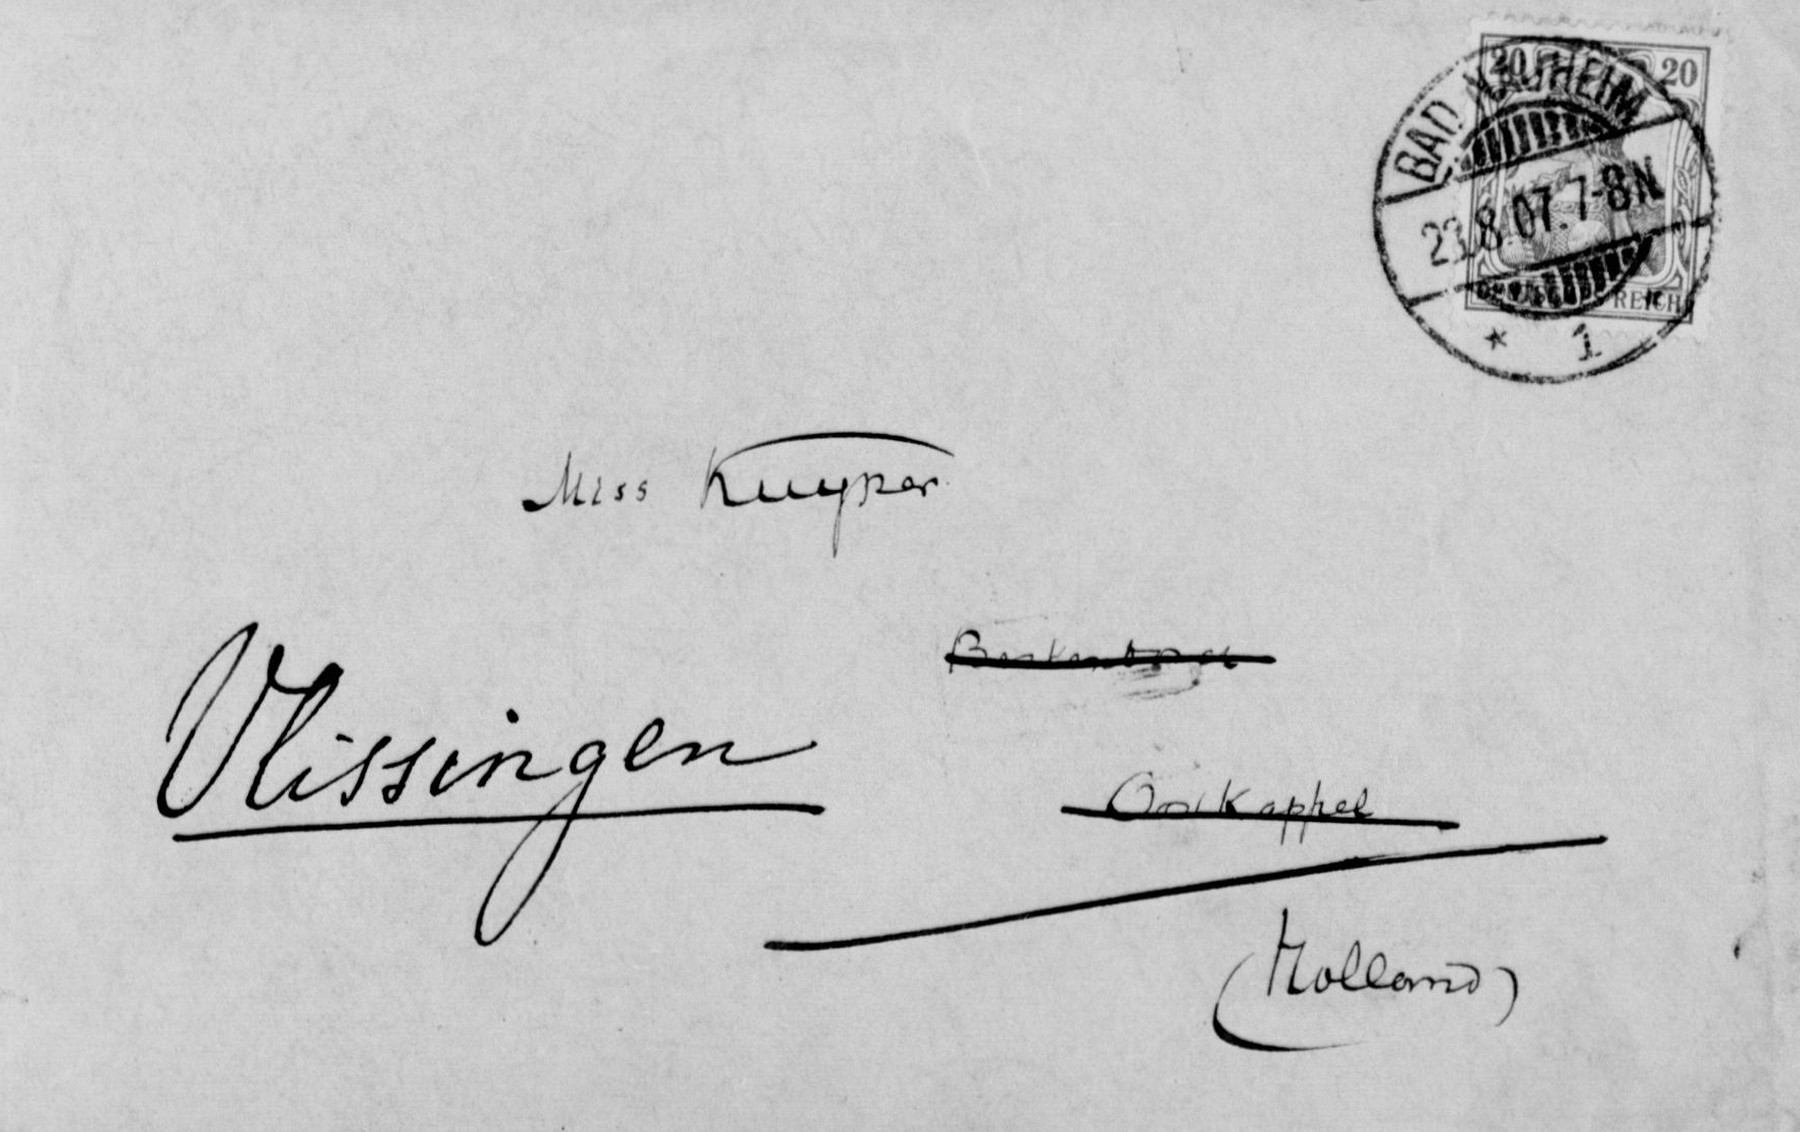 20 20
BAD NAUHEIM
23.8.07.7-8N
DEUTSCHES REICH
* 1
Miss Kuyper
Vlissingen
Oostkappel
(Holland)